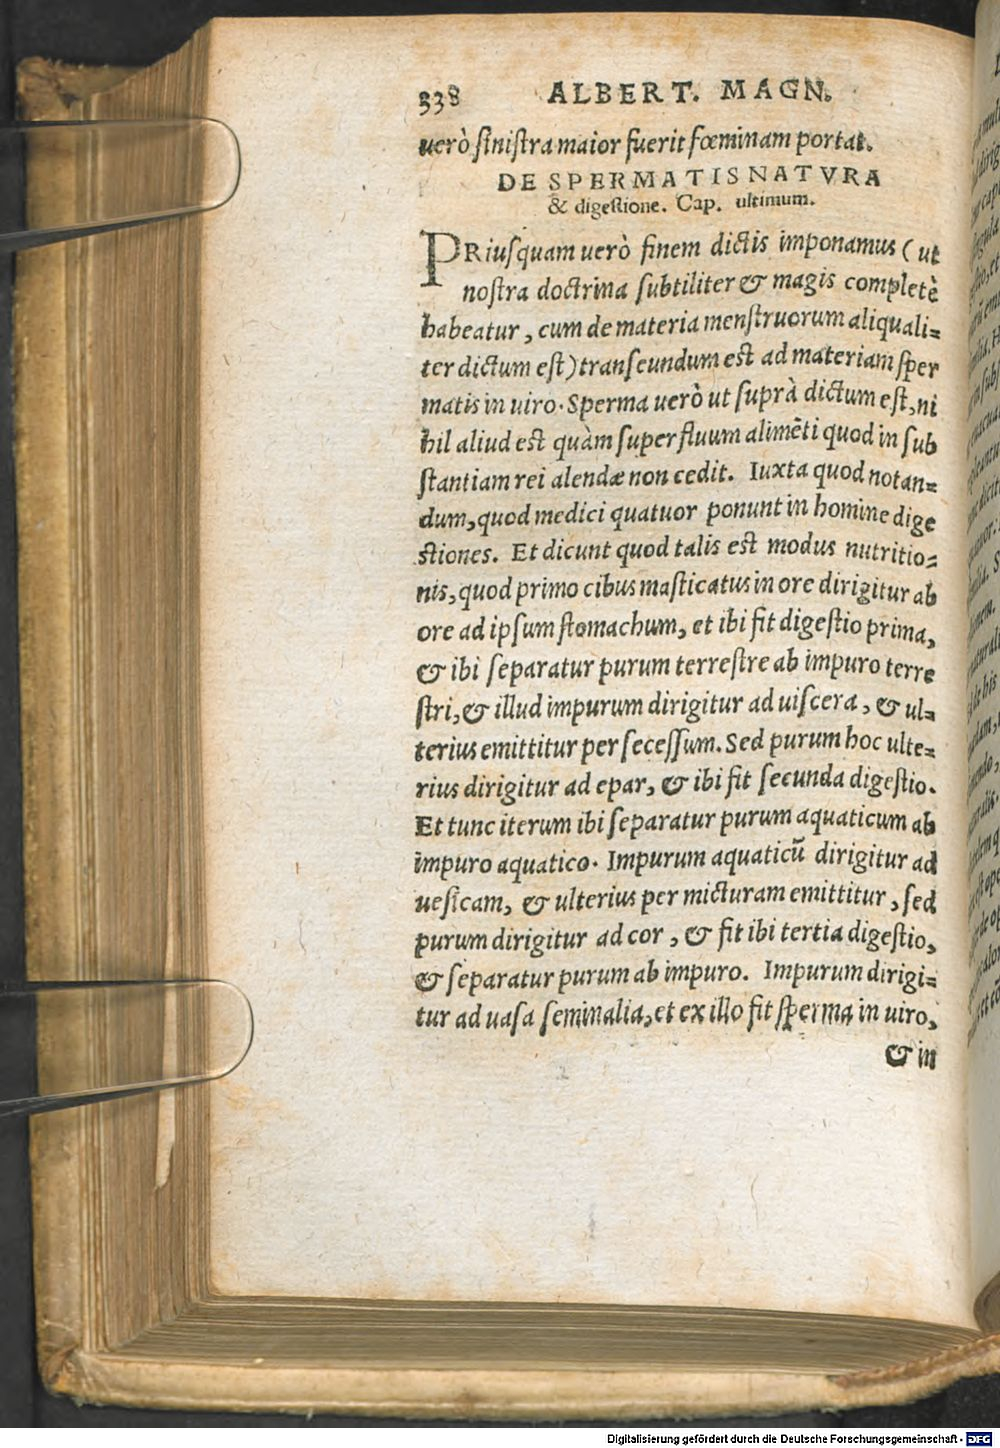 338 ALBERT. MAGN.
uerò ſiniſtra maior fuerit fœminam portat.
DE SPERMATIS NATVRA
& digeſtione. Cap. ultimum.
PRiuſquam uerò finem dictis imponamus (ut
noſtra doctrina ſubtiliter & magis completè
habeatur, cum de materia menſtruorum aliquali=
ter dictum eſt) tranſeundum eſt ad materiam ſper
matis in uiro. Sperma uerò ut ſuprà dictum eſt, ni
hil aliud eſt quàm ſuperfluum alimẽti quod in ſub
ſtantiam rei alendæ non cedit. Iuxta quod notan=
dum, quod medici quatuor ponunt in homine dige
ſtiones. Et dicunt quod talis eſt modus nutritio=
nis, quod primo cibus maſticatus in ore dirigitur ab
ore ad ipſum ſtomachum, et ibi fit digeſtio prima,
& ibi ſeparatur purum terreſtre ab impuro terre
ſtri, & illud impurum dirigitur ad uiſcera, & ul=
terius emittitur per ſeceſſum. Sed purum hoc ulte=
rius dirigitur ad epar, & ibi fit ſecunda digeſtio.
Et tunc iterum ibi ſeparatur purum aquaticum ab
impuro aquatico. Impurum aquaticũ dirigitur ad
ueſicam, & ulterius per micturam emittitur, ſed
purum dirigitur ad cor, & fit ibi tertia digeſtio,
& ſeparatur purum ab impuro. Impurum dirigi=
tur ad uaſa ſeminalia, et ex illo fit ſperma in uiro,
& in
Digitalisierung gefördert durch die Deutsche Forschungsgemeinschaft - DFG